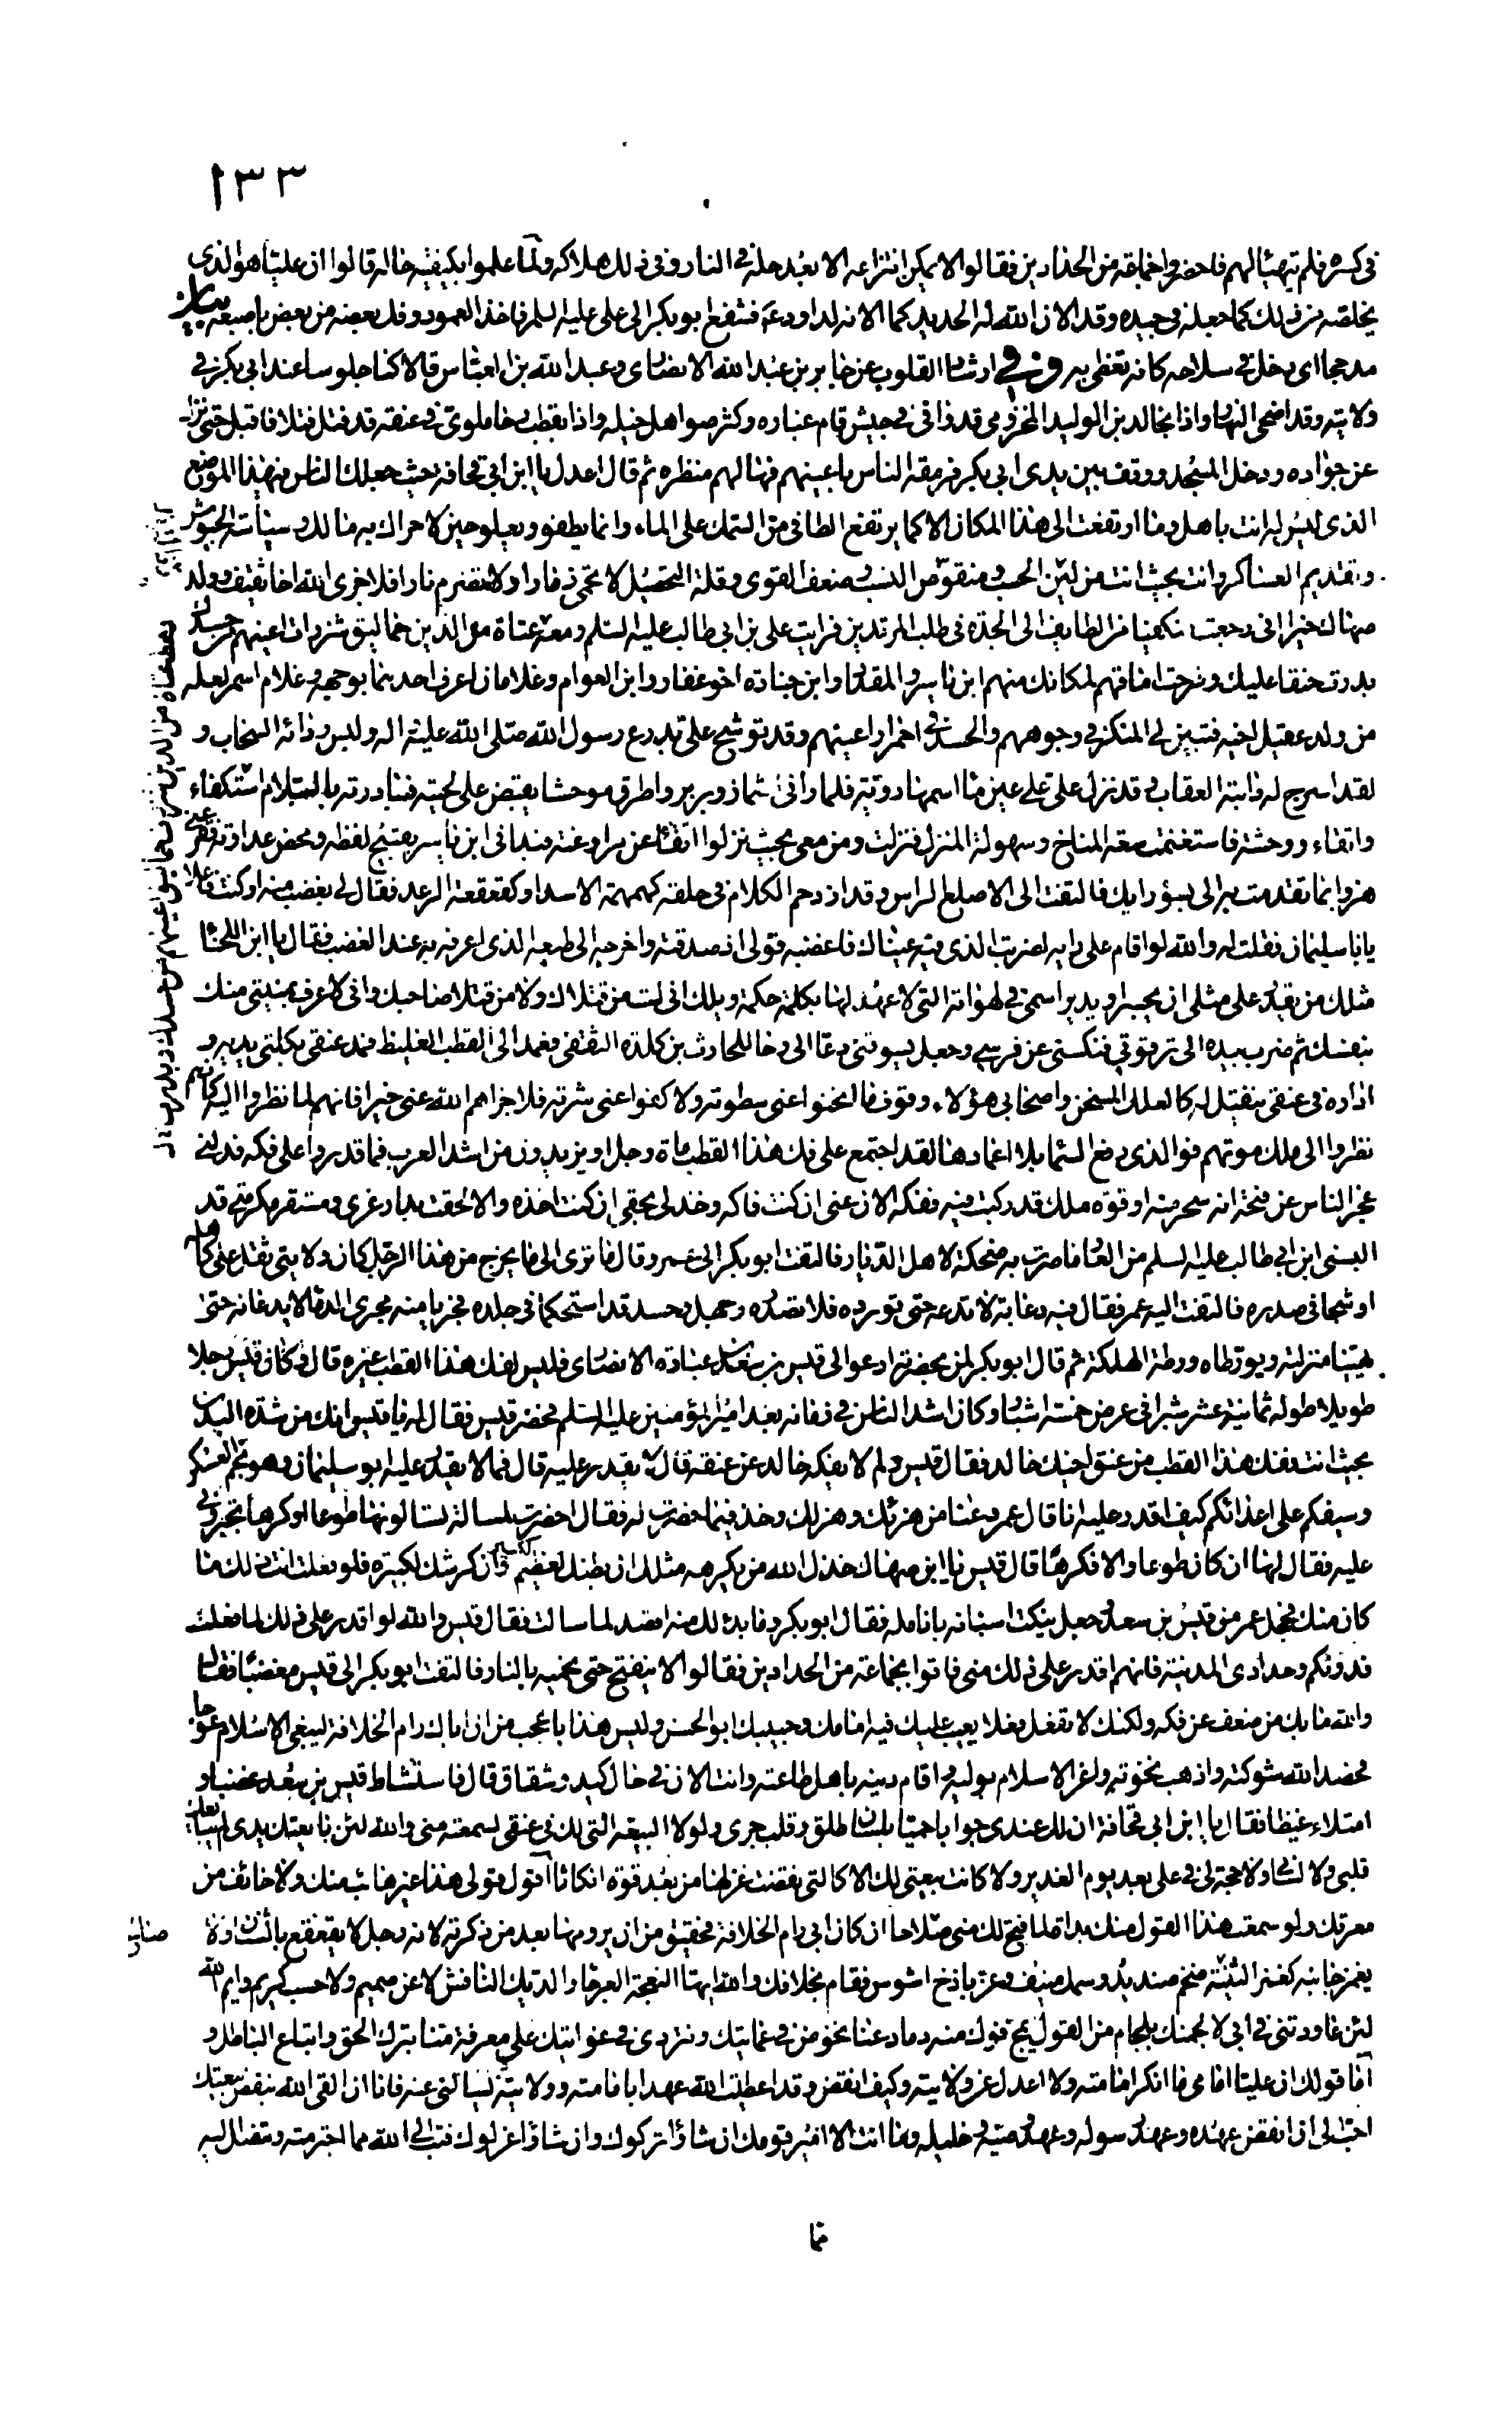 ١٣٣
في كسره فلم يتهيأ لهم فاحضروا جماعة من الحدادين فقالوا لا يمكن انتزاعه الا بعد حله في النار وفي ذلك هلاكه ولما علموا بكيفية حاله قالوا ان عليا هو الذي
يخلصه من ذلك كما جعله في جيده وقد الان الله له الحديد كما الانه لداود عه فشفع ابو بكر الى علي عليه السلم فاخذ العمود وفك بعضه من بعض باصبعه بيان
مدججا اي دخل في سلاحه كانه تغطى به وفي ارشاد القلوب عن جابر بن عبد الله الانصاري وعبد الله بن العباس قالا كنا جلوسا عند ابي بكر في
ولايته وقد اضحى النهار واذا بخالد بن الوليد المخزومي قد وافى في جيش قام غباره وكثر صواهل خيله واذا بقطب رحا ملوى في عنقه قد فتل فتلا فاقبل حتى نزل
عن جواده ودخل المسجد ووقف بين يدي ابي بكر فرمقه الناس باعينهم فهالهم منظره ثم قال اعدل يا ابن ابي قحافه حيث جعلك الناس في هذا الموضع
الذي ليس له انت باهل وما ارتفعت الى هذا المكان الا كما يرتفع الطافي من السمك على الماء وانما يطفو ويعلو حين لا حراك به مالك وسياسة الجيوش
وتقديم العساكر وانت بحيث انت من لين الحسب ومنقوص النسب وضعف القوى وقلة التحصيل لا تحمي ذمارا ولا تضرم نارا فلا جزى الله اخا ثقيف وولد
صهاك خيرا اني رجعت منكفيا من الطايف الى الجدة في طلب المرتدين فرايت علي بن ابي طالب عليه السلم ومعه عتاة من الدين حماليق شزرات اعينهم من حسدك
بدرت حنقا عليك وقرحت اماقهم لمكانك منهم ابن ياسر والمقداد وابن جنادة اخو غفار وابن العوام وغلامان اعرف احدهما بوجهه وغلام اسمر لعله
من ولد عقيل اخيه فتبين لي المنكر في وجوههم والحسد في احمرار اعينهم وقد توشح علي بدرع رسول الله صلى الله عليه اله ولبس رداءه السحاب و
لقد اسرج له دابته العقاب وقد نزل علي على عين ماء اسمها روية فلما رآني اشماز وبربر واطرق موحشا يقبض على لحيته فبادرته بالسلام استكفاء
واتقاء ووحشة فاستغنمت سعة المناخ وسهولة المنزل فنزلت ومن معي بحيث نزلوا اتقاء عن مراوغته فبداني ابن ياسر بقبيح لفظه ومحض عداوته فقرعني
هزوا بما تقدمت به الى بسوء رايك فالتفت الى الاصلع الراس وقد ازدحم الكلام في حلقه كهمهمة الاسد او كقعقعة الرعد فقال لي بغضب منه او كنت فاعلا
يا با سليمان فقلت له والله لو اقام على رايه لضربت الذي فيه عيناك فاغضبه قولي اذ صدقته واخرجه الى طبعه الذي اعرفه به عند الغضب فقال يا ابن اللخناء
مثلك من يقدر على مثلي ان يجسر او يدير اسمي في لهواته التي لا عهد لها بكلمة حكمة ويلك اني لست من قتلاك ولا من قتلا صاحبك واني لاعرف بمنيتي منك
بنفسك ثم ضرب بيده الى ترقوتي فنكسني عن فرسي وجعل يسوقني دعا الى رحا للحارث بن كلدة الثقفي فعمد الى القطب الغليظ فمد عنقي بكلتي يديه و
اداره في عنقي ينفتل له كالعلك المسخن واصحابي هؤلاء وقوف ما اغنوا عني سطوته ولا كفوا عني شرته فلا جزاهم الله عني خيرا فانهم لما نظروا اليه كانهم
نظروا الى ملك موتهم فوالذي رفع السماء بلا اعمادها لقد اجتمع على فك هذا القطب مائة رجل او يزيدون من اشد العرب فما قدروا على فكه فدلني
عجز الناس عن فتحه انه سحر منه او قوة ملك قد ركبت فيه ففكه الان عني ان كنت فاكه وخذ لي بحقي ان كنت اخذه والا لحقت بدار عزي ومستقر مكرمتي قد
البسني ابن ابي طالب عليه السلم من العار ما صرت به ضحكة لاهل الديار فالتفت ابو بكر الى عمر وقال ما ترى الى ما يخرج من هذا الرجل كان ولايتي ثقل على كاهله
او شجا في صدره فالتفت اليه عمر فقال فيه دعابة لا تدعه حتى تورده فلا تصدره وجهل وحسد قد استحكما في خلده فجريا منه مجرى الدماء لا يدعانه حتى
يهينا منزلته ويورطاه ورطة الهلكة ثم قال ابو بكر لمن بحضرته ادعوا لي قيس بن سعد بن عبادة الانصاري فليس لفك هذا القطب غيره قال وكان قيس رجلا
طويلا طوله ثمانية عشر شبرا في عرض خمسة اشبار وكان اشد الناس في زمانه بعد امير المؤمنين عليه السلم فحضر قيس فقال له يا قيس انك من شدة البدن
بحيث انت ففك هذا القطب من عنق اخيك خالد فقال قيس ولم لا يفكه خالد عن عنقه قال لا يقدر عليه قال فما لا يقدر عليه ابو سليمان وهو نجم العسكر
وسيفكم على اعدائكم كيف اقدر عليه انا قال عمر دعنا من هزئك وهزلك وخذ فيما حضرت له فقال احضرت لمسالة تسالونها طوعا او كرها تجبروني
عليه فقال لها ان كان طوعا والا فكرها قال قيس يا ابن صهاك خذل الله من يكرهه مثلك ان بطنك لعظيم وان كرشك لكبيرة فلو فعلت انت ذلك ما
كان منك فخجل عمر من قيس بن سعد وجعل ينكت اسنانه بانامله فقال ابو بكر وما بذلك منه اقصد لما سالت فقال قيس والله لو اقدر على ذلك لما فعلت
فدونكم وحدادي المدينة فانهم اقدر على ذلك مني فاتوا بجماعة من الحدادين فقالوا لا ينفتح حتى نحميه بالنار فالتفت ابو بكر الى قيس مغضبا فقال
والله ما بك من ضعف عن فكه ولكنك لا تفعل فعلا يعيب عليك فيه امامك وحبيبك ابو الحسن وليس هذا باعجب من ان اباك رام الخلافة ليبغي الاسلام عوجا
فحصد الله شوكته واذهب نخوته واعز الاسلام بوليه واقام دينه باهل طاعته وانت الان في حال كيد وشقاق قال فاستشاط قيس بن سعد غضبا و
امتلاء غيظا فقال يا ابن ابي قحافة ان لك عندي جوابا حميا بلسان طلق وقلب جري ولولا البيعة التي لك في عنقي لسمعته مني والله لئن بايعتك يدي لم يبايعك
قلبي ولا لساني ولا حجة لي في علي بعد يوم الغدير ولا كانت بيعتي لك الا كالتي نقضت غزلها من بعد قوة انكاثا اقول قولي هذا غير هائب منك ولا خائف من
معرتك ولو سمعت هذا القول منك بداة لما فتح لك مني صلاحا ان كان ابي رام الخلافة فحقيق من ان يرومها بعد من ذكرته لانه رجل لا يقعقع بالشنان ولا
يغمز جانبه كغمز التينة ضخم صنديد وسمك منيف وعز باذخ اشوس فقام بخلافك والله ايها النعجة العرجاء والديك النافش لا عن صميم ولا حسب كريم وايم الله
لئن عاودتني في ابي لالجمنك بلجام من القول يمج فوك منه دما دعنا نخوض في عمايتك ونتردى في غوايتك على معرفة منا بترك الحق واتباع الباطل و
اما قولك ان عليا امامي ما انكر امامته ولا اعدل عن ولايته وكيف انقض وقد اعطيت الله عهدا بامامته وولايته يسالني عنه فانا ان القى الله بنقض بيعتك
احب الي ان انقض عهده وعهد رسوله وعهد وصيه وخليله وما انت الا امير قومك ان شاؤا تركوك وان شاؤا عزلوك فتب الى الله مما اجترمته وتنصل اليه
مما